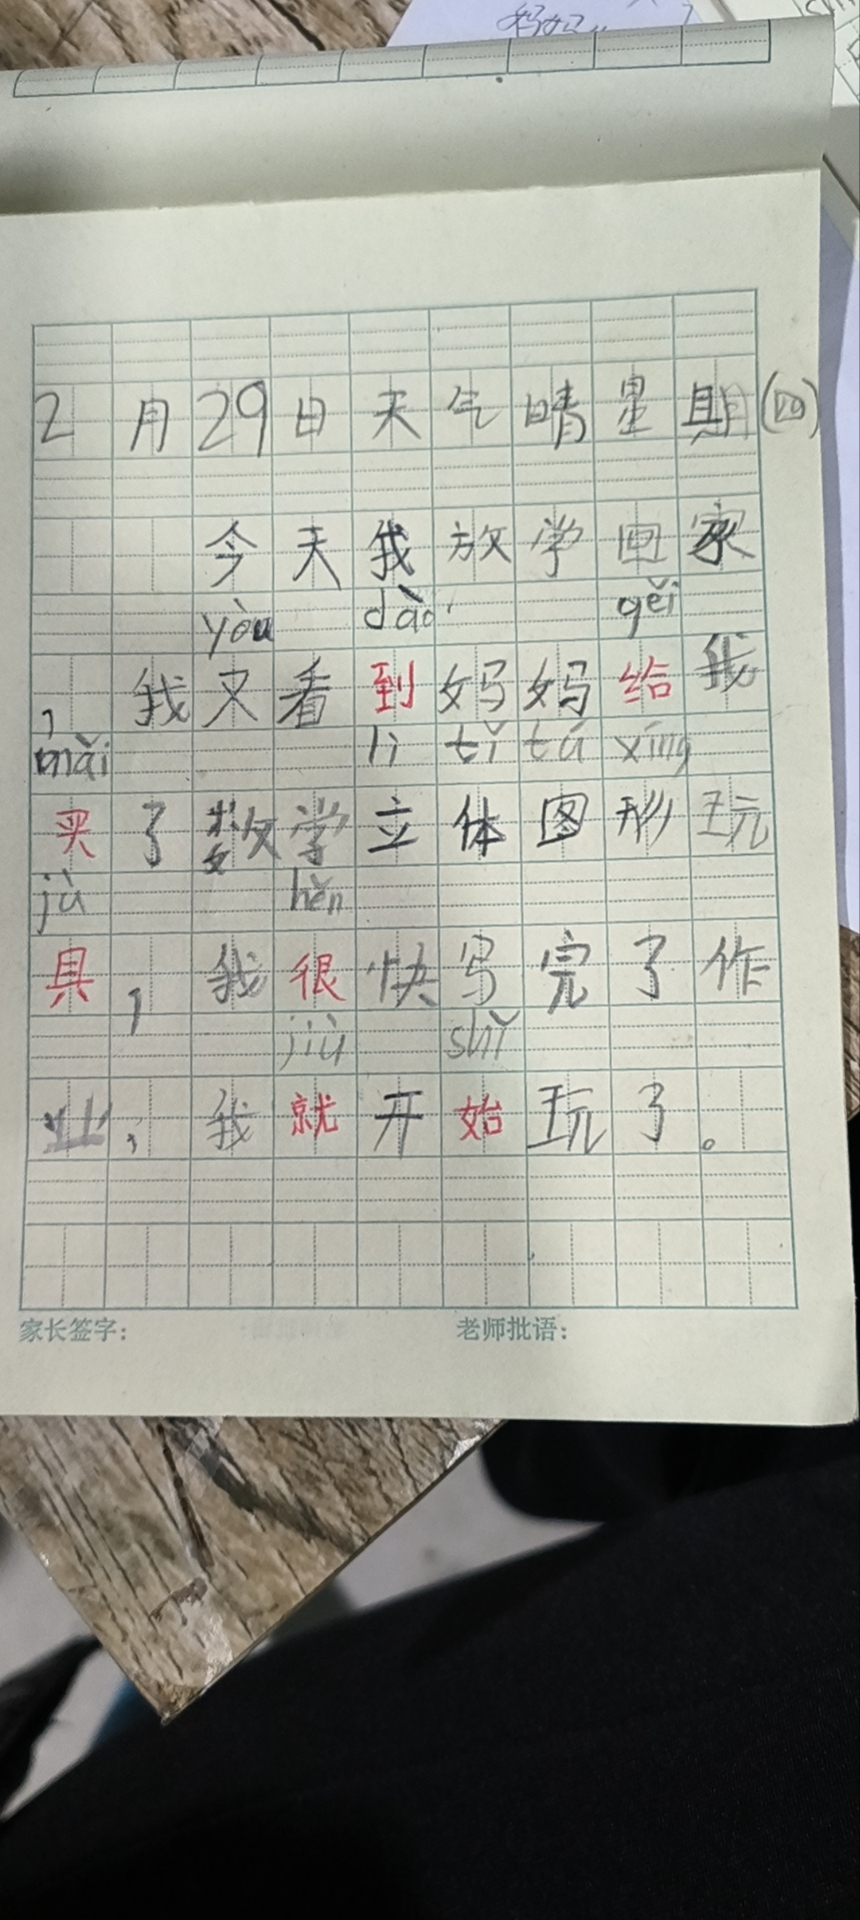 妈妈
2月29日天气晴星期(四)
今天我放学回家
yòu dào gěi
，我又看到妈妈给我
mǎi lì tǐ tú xíng
买了数学立体图形玩
jù hěn
具，我很快写完了作
jiù shǐ
业，我就开始玩了。
家长签字： 老师批语：